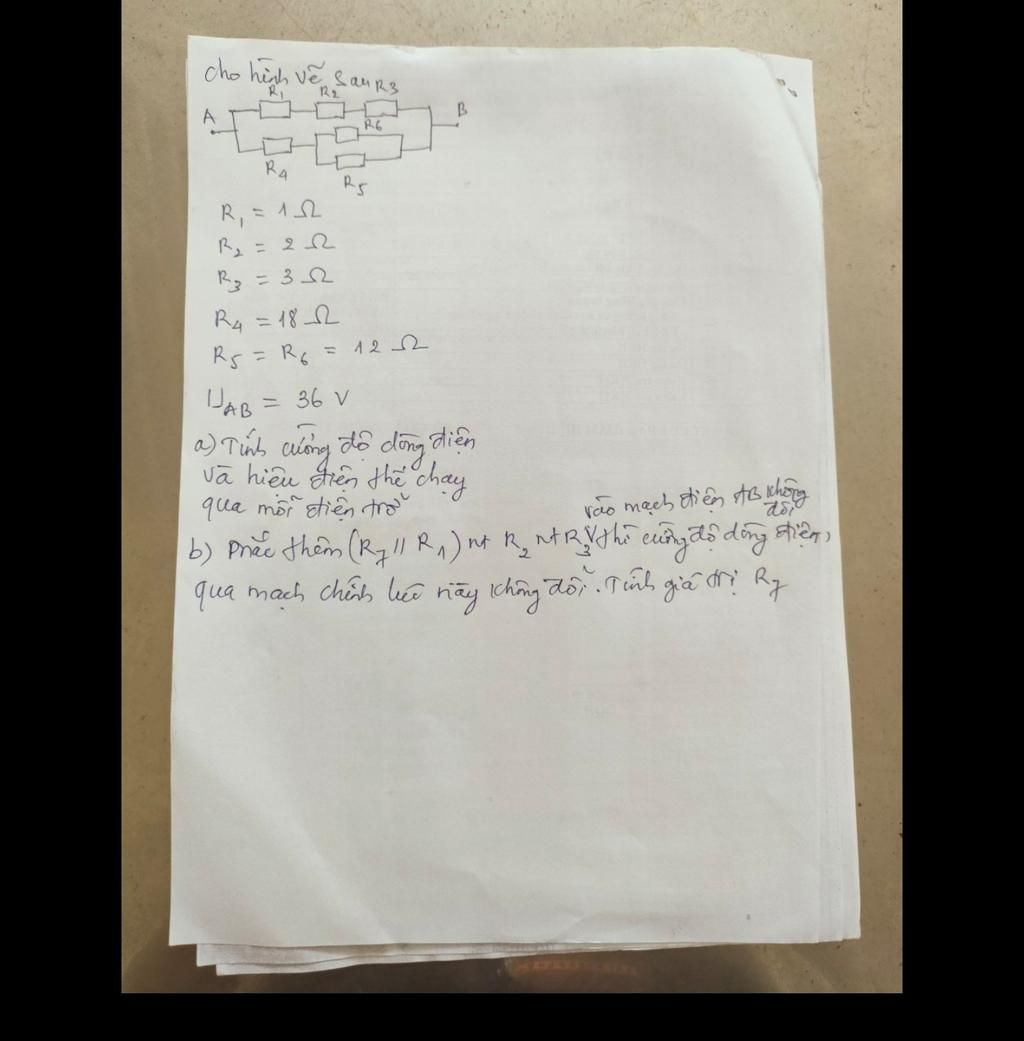 Cho hình vẽ sau
R1 R2 R3
A B
R6
R4
R5
R1 = 1 Ω
R2 = 2 Ω
R3 = 3 Ω
R4 = 18 Ω
R5 = R6 = 12 Ω
UAB = 36 V
a) Tính cường độ dòng điện
và hiệu điện thế chạy
qua mỗi điện trở
vào mạch điện AB không
đổi
b) Mắc thêm (R7 // R1) nt R2 nt R3 V thì cường độ dòng điện,
qua mạch chính lúc này không đổi. Tính giá trị R7